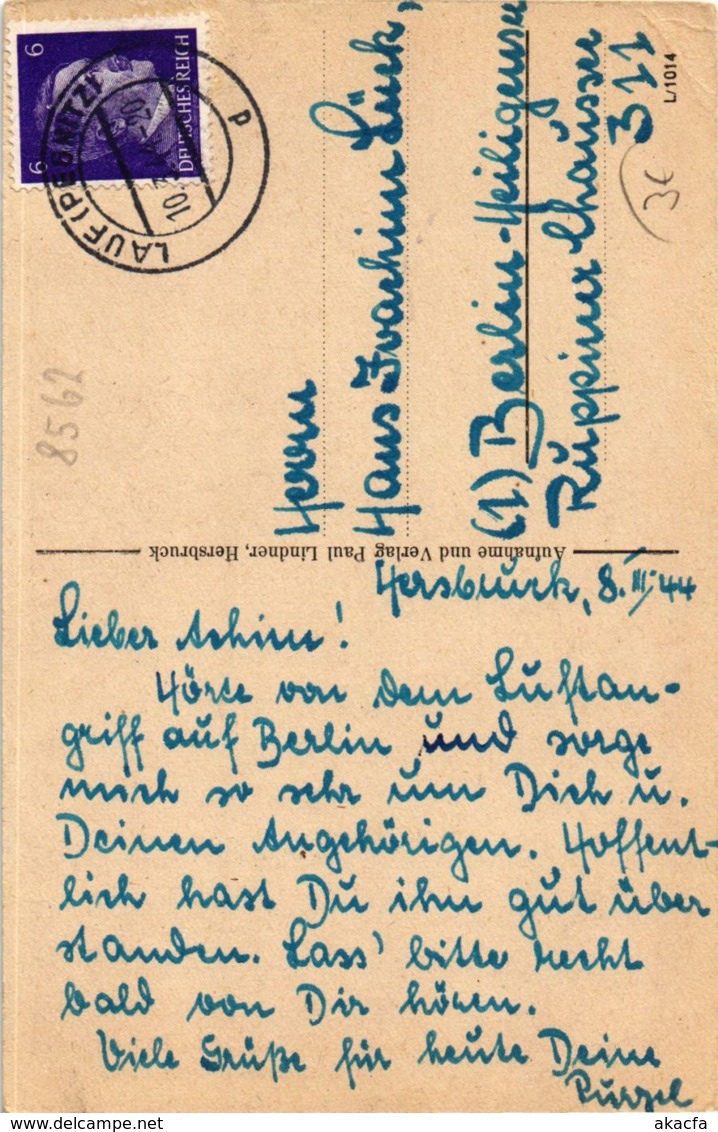 6 6
DEUTSCHES REICH
LAUF (PEGNITZ)
10.3.44-20
p
Herrn
Hans Joachim Lück,
(1) Berlin-Heiligensee
Ruppiner Chaussee
311
L/1014
3€
8562
Aufnahme und Verlag Paul Lindner, Hersbruck
Hersbruck, 8.III.44
Lieber Achim!
Hörte von dem Luftan-
griff auf Berlin und sorge
mich so sehr um Dich u.
Deinen Angehörigen. Hoffent-
lich hast Du ihn gut über
standen. Lass' bitte recht
bald von Dir hören.
Viele Grüße für heute Deine
Purzel
akacfa